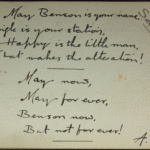 May Benson is your name,
Single is your station,
Happy is the little man,
That makes the alteration!
May now,
May for ever,
Benson now,
But not for ever!
A